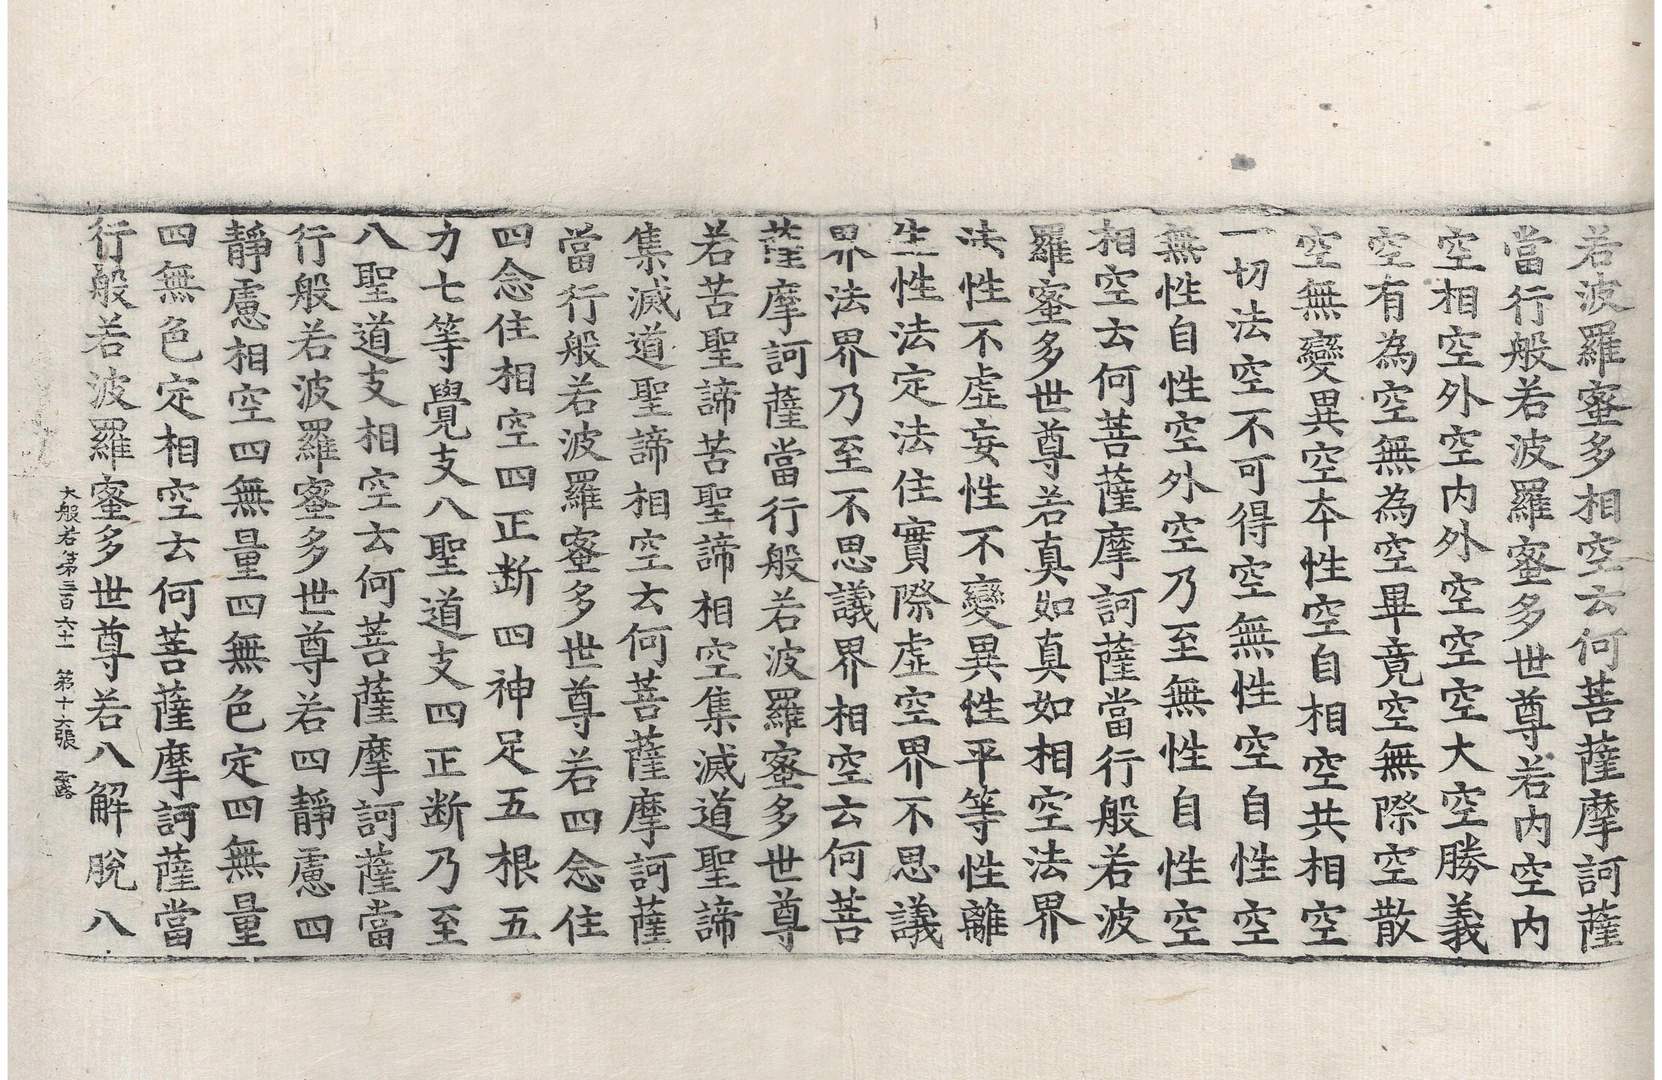 若波羅蜜多相空云何菩薩摩訶薩
當行般若波羅蜜多世尊若內空內
空相空外空內外空空空大空勝義
空有為空無為空畢竟空無際空散
空無變異空本性空自相空共相空
一切法空不可得空無性空自性空
無性自性空外空乃至無性自性空
相空云何菩薩摩訶薩當行般若波
羅蜜多世尊若真如真如相空法界
法性不虛妄性不變異性平等性離
生性法定法住實際虛空界不思議
界法界乃至不思議界相空云何菩
薩摩訶薩當行般若波羅蜜多世尊
若苦聖諦苦聖諦相空集滅道聖諦
集滅道聖諦相空云何菩薩摩訶薩
當行般若波羅蜜多世尊若四念住
四念住相空四正断四神足五根五
力七等覺支八聖道支四正断乃至
八聖道支相空云何菩薩摩訶薩當
行般若波羅蜜多世尊若四靜慮四
靜慮相空四無量四無色定四無量
四無色定相空云何菩薩摩訶薩當
行般若波羅蜜多世尊若八解脫八
大般若第三百六十一 第十六張 露